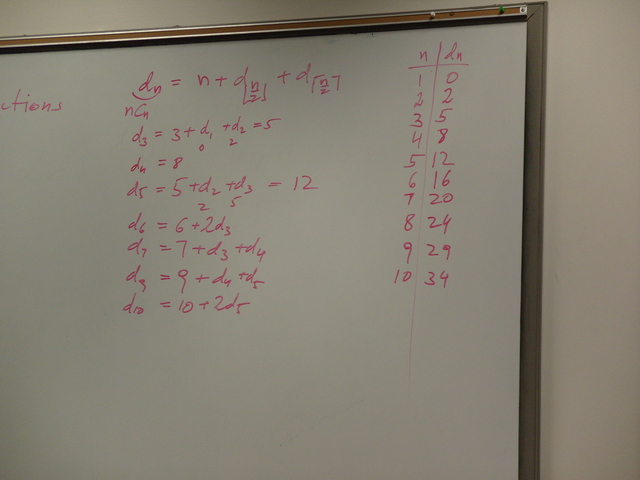 ctions
dₙ = n + d⌊n/2⌋ + d⌈n/2⌉
nCn
d₃ = 3 + d₁ + d₂ = 5
0 2
d₄ = 8
d₅ = 5 + d₂ + d₃ = 12
2 5
d₆ = 6 + 2d₃
d₇ = 7 + d₃ + d₄
d₉ = 9 + d₄ + d₅
d₁₀ = 10 + 2d₅
n dₙ
1 0
2 2
3 5
4 8
5 12
6 16
7 20
8 24
9 29
10 34